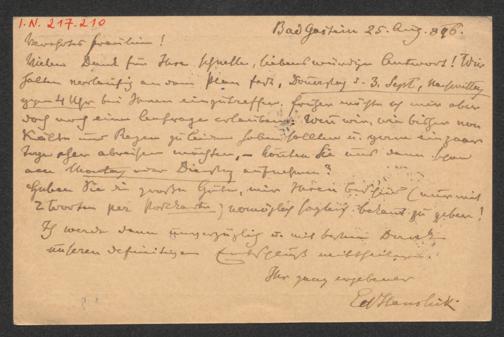 I.N. 217.210
Bad Gastein 25. Aug. 896.
Verehrtes Fräulein!
Vielen Dank für Ihre schnelle, liebenswürdige Antwort! Wir
halten vorläufig an dem Plan fest, Donnerstag d. 3. Sept., Nachmittag
gegen 4 Uhr bei Ihnen einzutreffen. möchte ich mir aber
doch noch eine Anfrage erlauben: Wenn wir, wie bisher von
Kälte und Regen zu leiden haben sollten u. gerne ein paar
Tage eher abreisen möchten, – könnten Sie uns dann schon
am Montag oder Dienstag aufnehmen?
Haben Sie die große Güte, mir Ihren (nur mit
2 Worten per Postkarte) womöglich sogleich bekannt zu geben!
Ich werde dann unverzüglich u. mit bestem Dank
unseren definitiven Entschluß mittheilen.
Ihr ganz ergebener
Ed Hanslick.